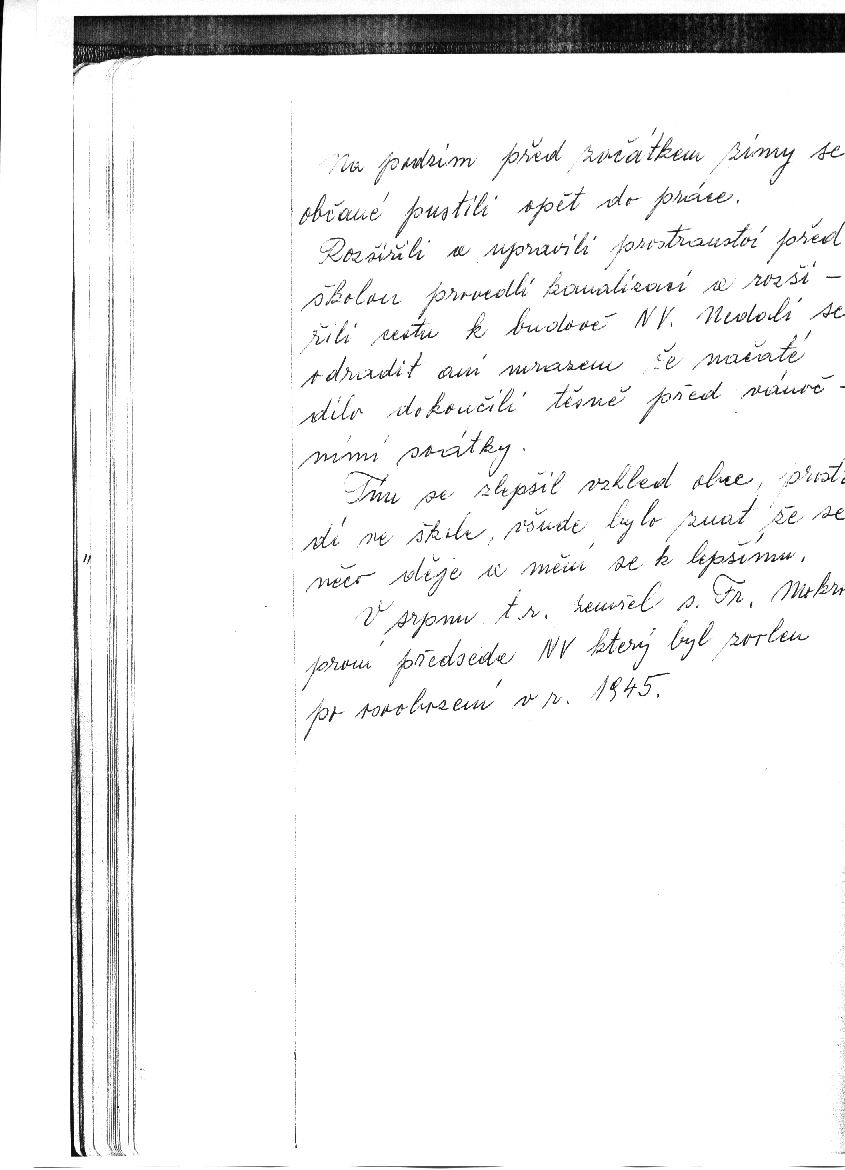 Na podzim před začátkem zimy se
občané pustili opět do práce.
Rozšířili a upravili prostranství před
školou provedli kanalizaci a rozší-
řili cestu k budově NV. Nedali se
odradit ani mrazem že načaté
dílo dokončili těsně před vánoč-
ními svátky.
Tím se zlepšil vzhled obce, prostř
dí ve škole, všude bylo znat že se
něco děje a mění se k lepšímu.
V srpnu t.r. zemřel s. Fr. Mokr
první předseda NV který byl zvolen
po osvobození v r. 1945.